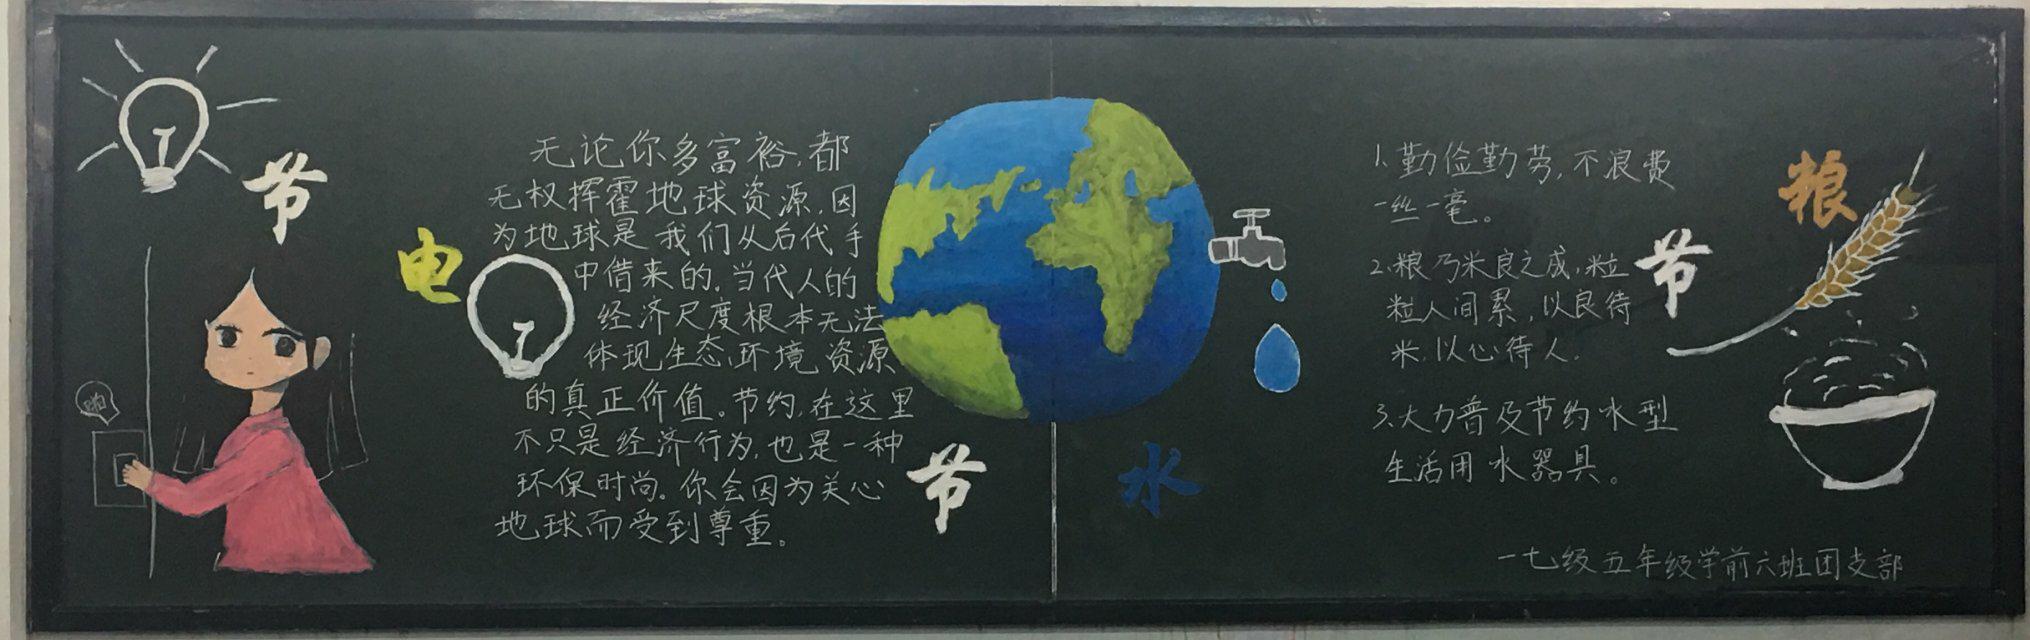 节
电
啪
无论你多富裕,都
无权挥霍地球资源,因
为地球是我们从后代手
中借来的,当代人的
经济尺度根本无法
体现生态,环境,资源
的真正价值。节约,在这里
不只是经济行为,也是一种
环保时尚。你会因为关心
地球而受到尊重。
节
水
1.勤俭勤劳,不浪费
一丝一毫。
2.粮乃米良之成,粒
粒人间累,以良待
米,以心待人.
3.大力普及节约水型
生活用水器具。
节
粮
一七级五年级学前六班团支部